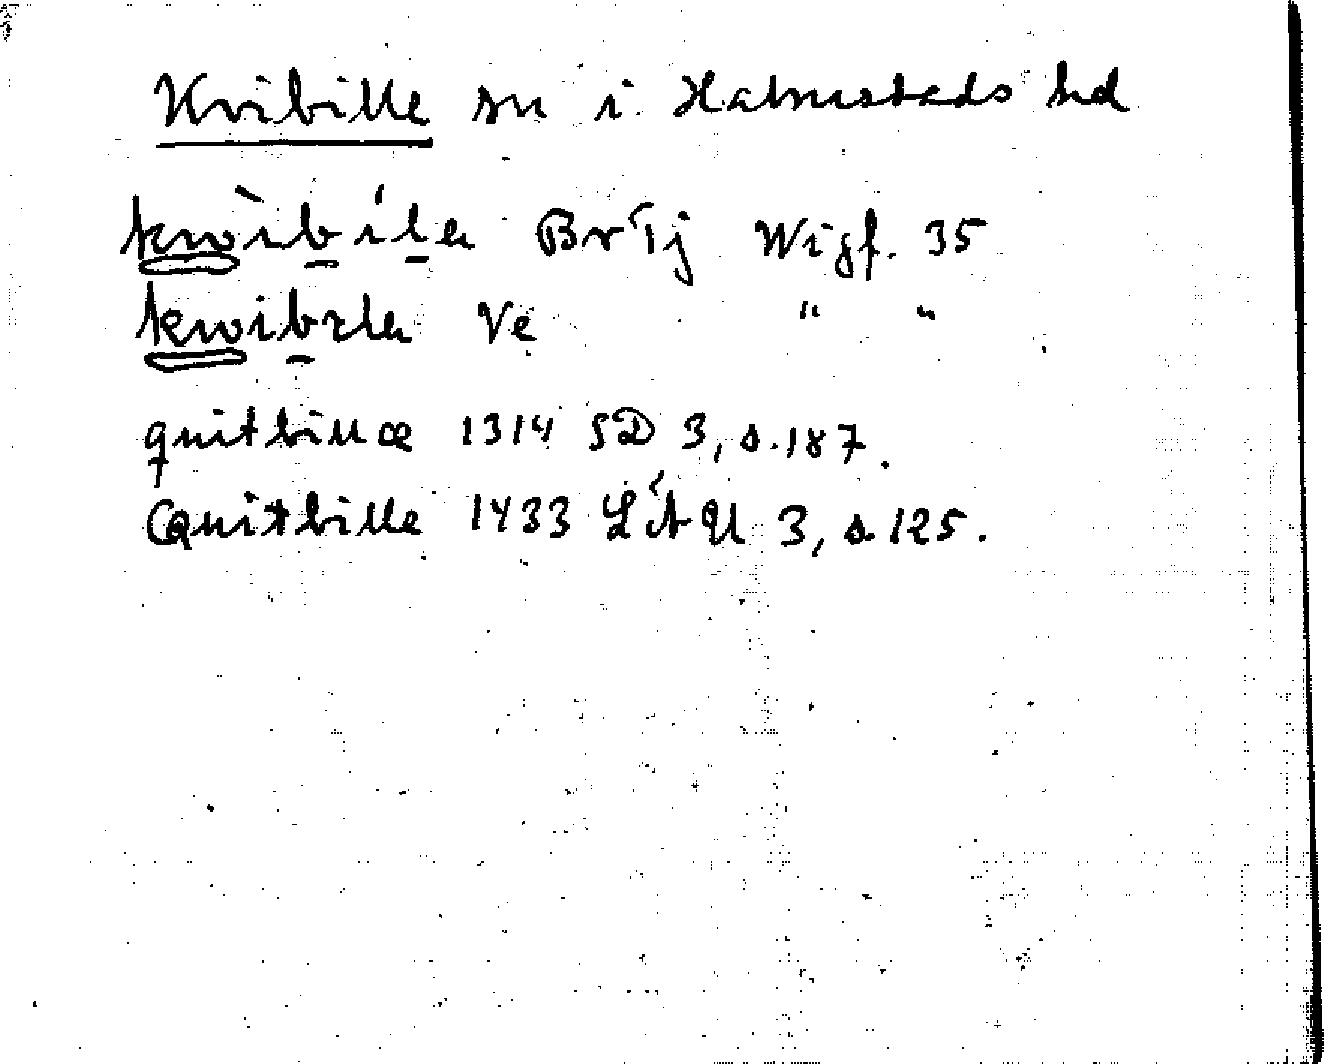 Kvibille sn i Halmstads hd
kwìbíla BrTj Wigf. 35
kwibila Ve " "
quitbillæ 1314 SD 3, s. 187.
Quitbille 1433 LÄU 3, s. 125.